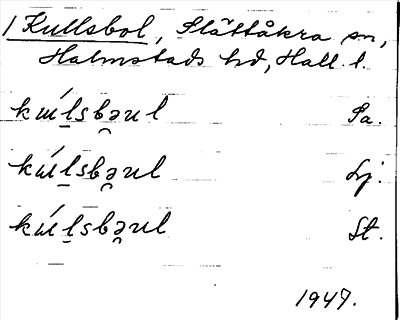 / Kullsbol, Slättåkra sn,
Halmstads hd, Hall. l.
kɯ́l̠sbə̯ul Sa.
kɯ́l̠sbə̯ul Lj.
kɯ́l̠sbə̯ul St.
1947.